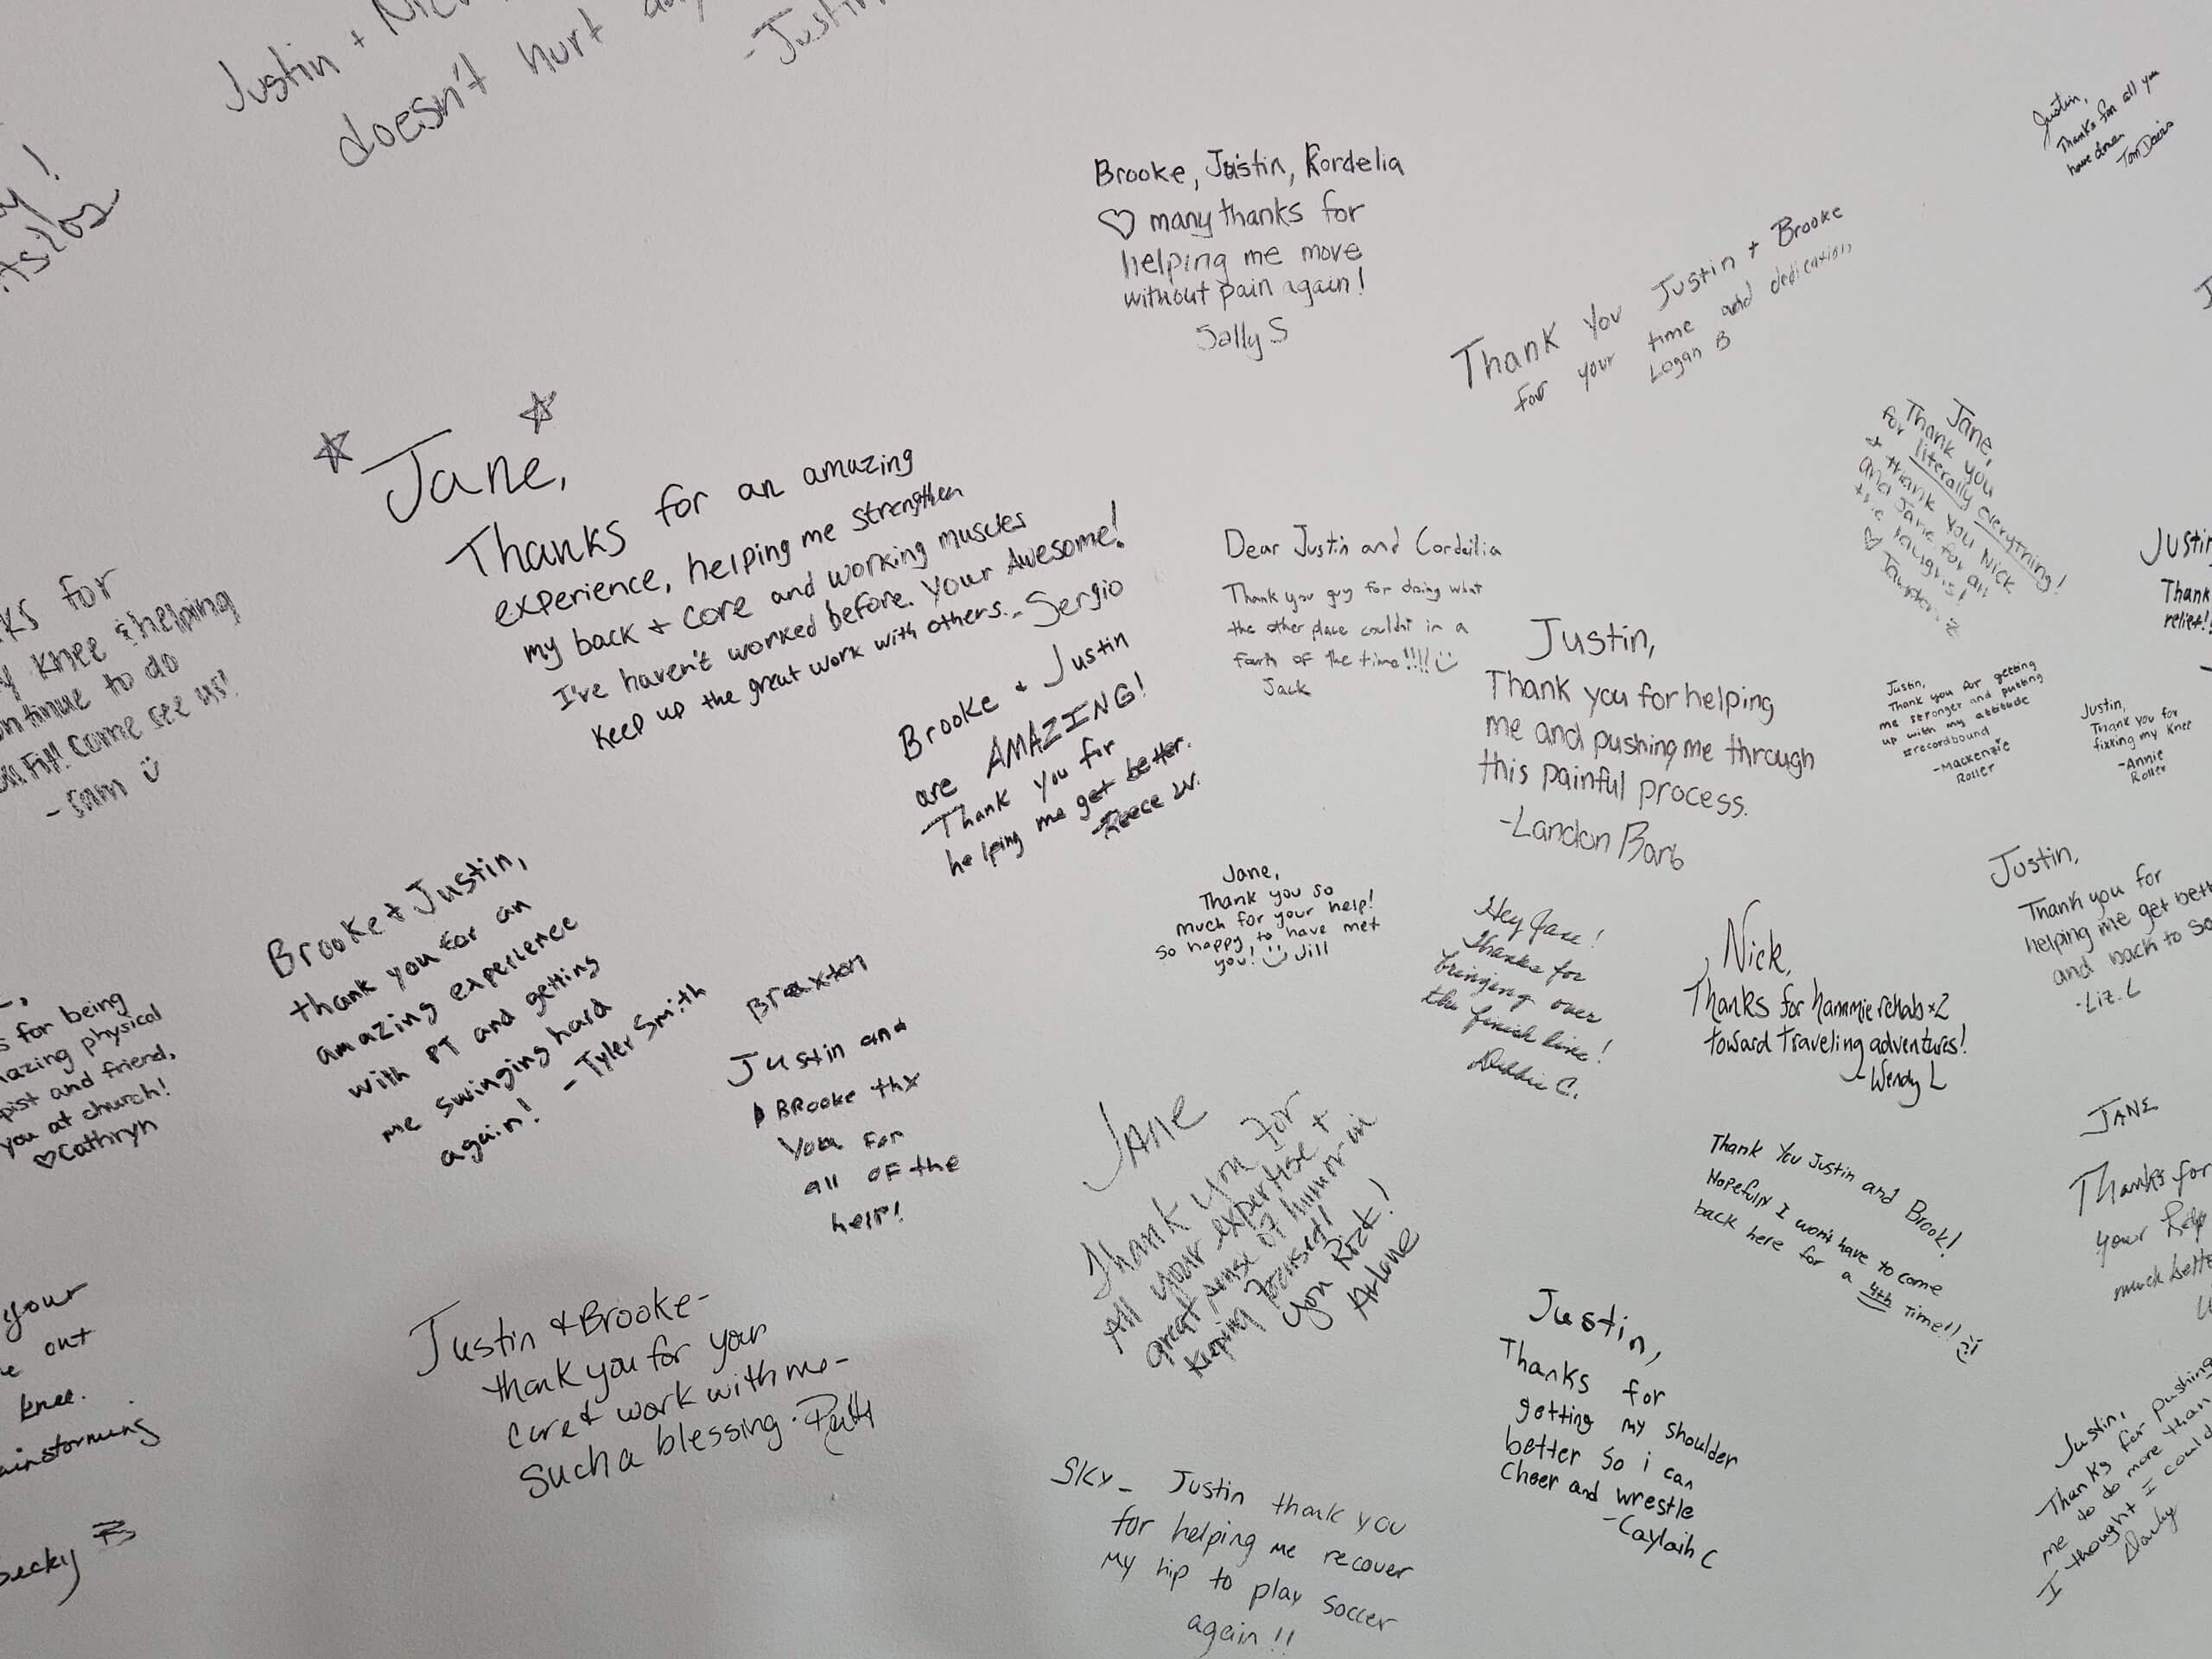 Justin +
doesn't hurt
-Justin
Justin,
Thanks for all you
have done
Tom Davis
Brooke, Justin, Kordelia
♡ many thanks for
helping me move
without pain again!
Sally S
Thank You Justin + Brooke
for your time and dedication
Logan B
Jane,
Thanks for an amazing
experience, helping me strengthen
my back + core and working muscles
I've haven't worked before. Your Awesome!
Keep up the great work with others. - Sergio
Jane,
Thank you
for literally everything!
+ thank you Nick
and Jane for all
the laughs!
Dear Justin and Cordeilia
Thank you guy for doing what
the other place couldnt in a
fourth of the time!!!!
Jack
Justin
Thank
relief!!
ks for
y knee & helping
ontinue to do
Fit! Come see us!
- Sam
Brooke + Justin
are AMAZING!
Thank you for
helping me get better.
-Reece W.
Justin,
Thank you for helping
me and pushing me through
this painful process.
-Landon Barb
Justin,
Thank you for getting
me stronger and putting
up with my attitude
#recordbound
-Mackenzie
Roller
Justin,
Thank you for
fixing my knee
-Annie
Roller
Brooke + Justin,
thank you for an
amazing experience
with PT and getting
me swinging hard
again! - Tyler Smith
Jane,
Thank you so
much for your help!
So happy to have met
you! Jill
Hey Jane!
Thanks for
bringing over
the finish line!
Debbie C.
Nick,
Thanks for hammie rehab x2
toward traveling adventures!
-Wendy L
Justin,
Thank you for
helping me get bett
and back to so
-Liz. L
s for being
azing physical
pist and friend,
you at church!
♡Cathryn
Braxton
Justin and
Brooke thx
You for
all of the
help!
Jane
Thank you for
All your expertise +
great sense of humor in
keeping focused!
You Rock!
Arlane
Thank You Justin and Brook!
Hopefully I won't have to come
back here for a 4th time!!
JANE
Thanks for
your help
much bette
your
out
knee.
ainstorming
becky
Justin & Brooke-
thank you for your
care & work with me-
Such a blessing. Patti
Justin,
Thanks for
getting my shoulder
better So i can
Cheer and wrestle
-Caylaih C
Sky - Justin thank you
for helping me recover
my hip to play soccer
again!!
Justin,
Thanks for pushing
me to do more than
I thought I could